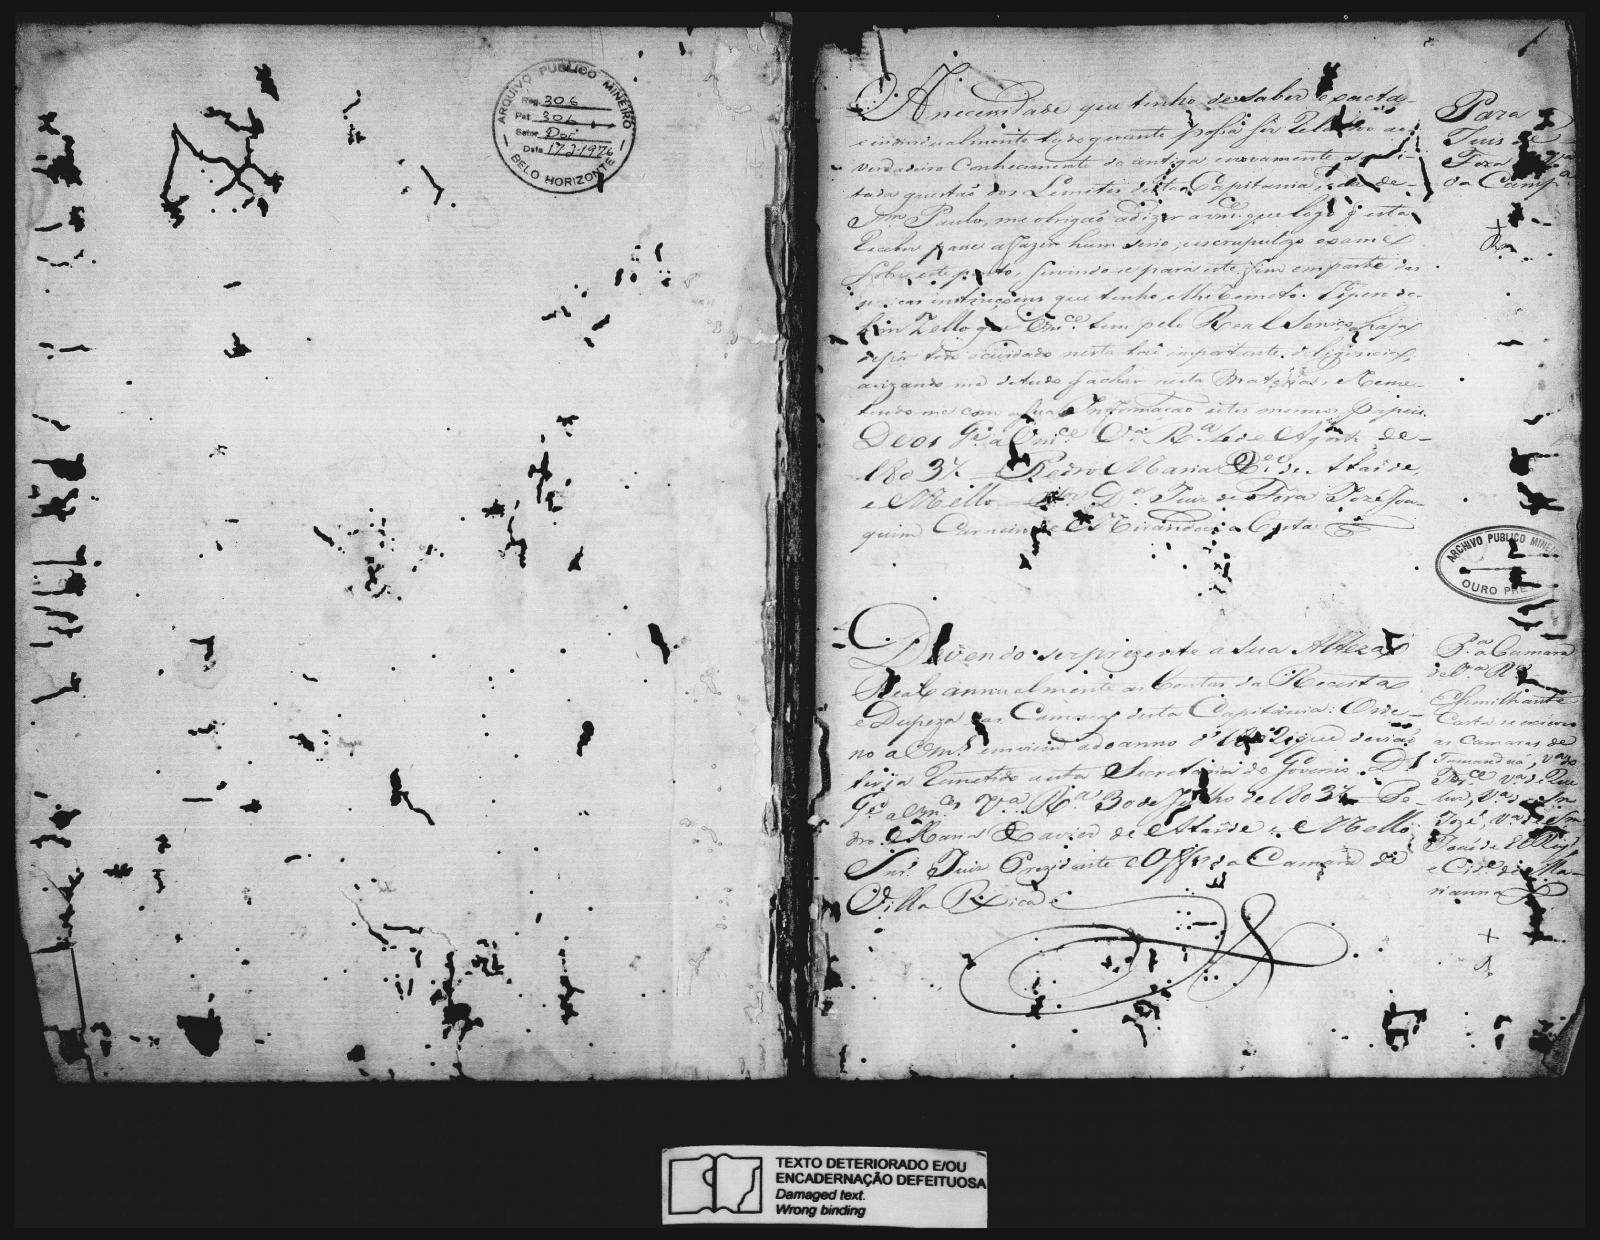 ARQUIVO PUBLICO MINEIRO
Reg. 306
Pat. 306
Setor Doc
Data 17-2-1976
BELO HORIZONTE
A necessidade que tenho de saber exacta-
e individualmente tudo quanto possa ser Relativo ao
verdadeiro Conhecimento da antiga e novamente
tada questão dos Limites desta Capitania, e da de
Sm. Paulo, me obrigão a dizer a vmce. que logo q' esta
Receber passe a fazer hum serio, e escrupulozo exame
sobre este ponto, servindo-se para este fim em parte das
instruçoens que tenho, e lhe Remeto. Espero do
bom Zello que Vmce. tem pelo Real Serviço, haja
de pôr todo o cuidado nesta tão importante deligencia,
avizando me de tudo q' achar nesta Materia, e Reme-
tendo-me com a sua Informação estes mesmos papeis.
Deos Ge. a Vmce. Va. Ra. de Agosto de
1803 // Pedro Maria Xer. de Ataide
e Mello Snr. Dor. Juiz de Fora Jozé Joa-
quim Carneiro de Miranda e Costa
Para
Juis de
Fora
da Campa.
ARCHIVO PUBLICO MINEIRO
OURO PRETO
Devendo ser prezente a Sua Alteza
Real annualmente as Contas da Receita
e Despeza das Camaras desta Capitania: Orde-
no a Vmces. enviem a do anno de 1802, que devião
ter já Remetido a esta Secretaria do Governo. Ds.
Ge. a Vmces. Va. Ra. 30 de Julho de 1803 // Pe-
dro Maria Xavier de Ataide e Mello
Snrs. Juiz Prezidente e Offes. da Camara de
Villa Rica
Pa. a Camara
de Va. Ra.
Semilhante
Carta se escreveo
as Camaras de
Tamanduá, Va. do
Pce. Va. de Que
luz, Va. de Sm
Jozé, Va. de Sm
João de El Rey
e Cide. de Ma-
rianna
TEXTO DETERIORADO E/OU
ENCADERNAÇÃO DEFEITUOSA
Damaged text.
Wrong binding